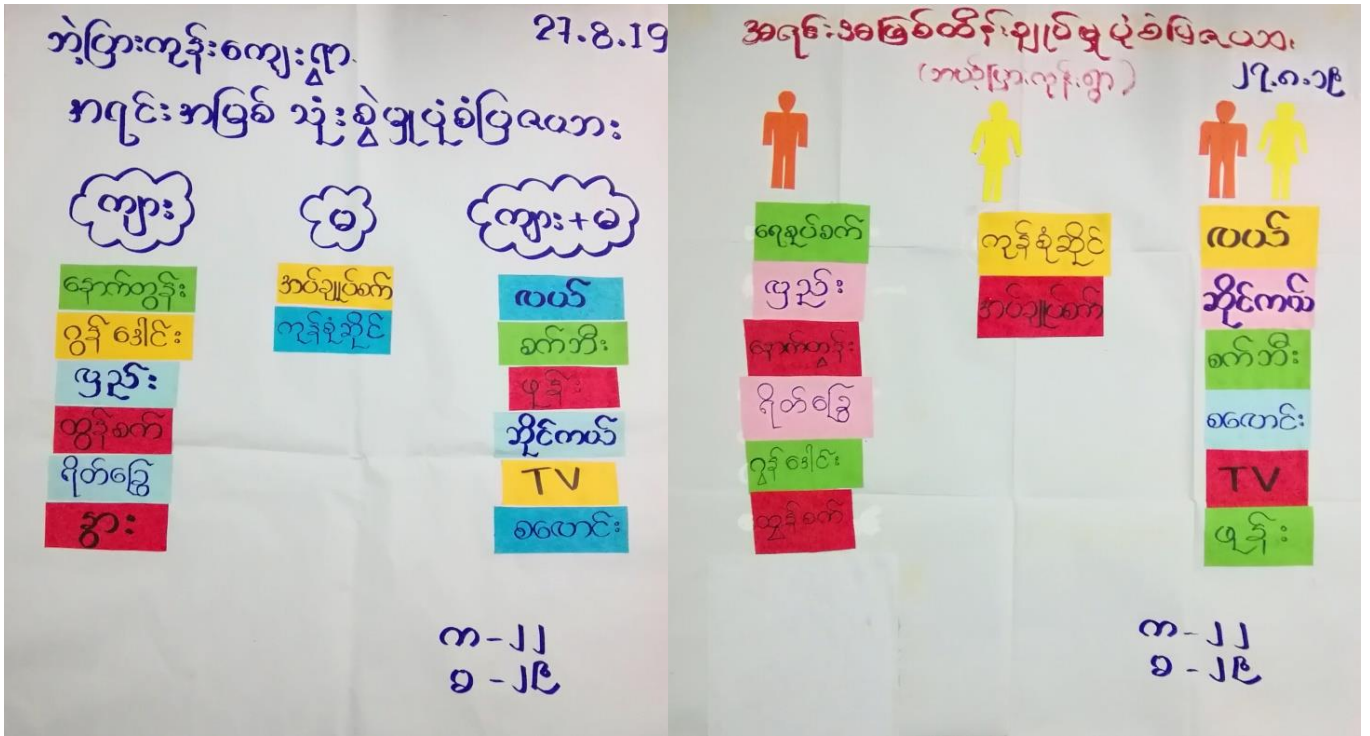 ဘဲပြားကုန်းကျေးရွာ
27.8.19
အရင်းအမြစ် သုံးစွဲမှုပုံစံပြဇယား
ကျား
မ
ကျား+မ
နောက်တွန်း
ဂွန်ဒေါင်း
လှည်း
ထွန်စက်
ရိတ်ခြွေ
နွား
အပ်ချုပ်စက်
ကုန်စုံဆိုင်
လယ်
စက်ဘီး
ဖုန်း
ဆိုင်ကယ်
TV
စလောင်း
က - ၂၂
မ - ၂၉
အရင်းအမြစ်ထိန်းချုပ်မှုပုံစံပြဇယား
(ဘယ်ပြားကုန်းရွာ)
၂၇.၈.၁၉
ရေစုပ်စက်
လှည်း
နောက်တွန်း
ရိတ်ခြွေ
ဂွန်ဒေါင်း
ထွန်စက်
ကုန်စုံဆိုင်
အပ်ချုပ်စက်
လယ်
ဆိုင်ကယ်
စက်ဘီး
စလောင်း
TV
ဖုန်း
က - ၂၂
မ - ၂၉